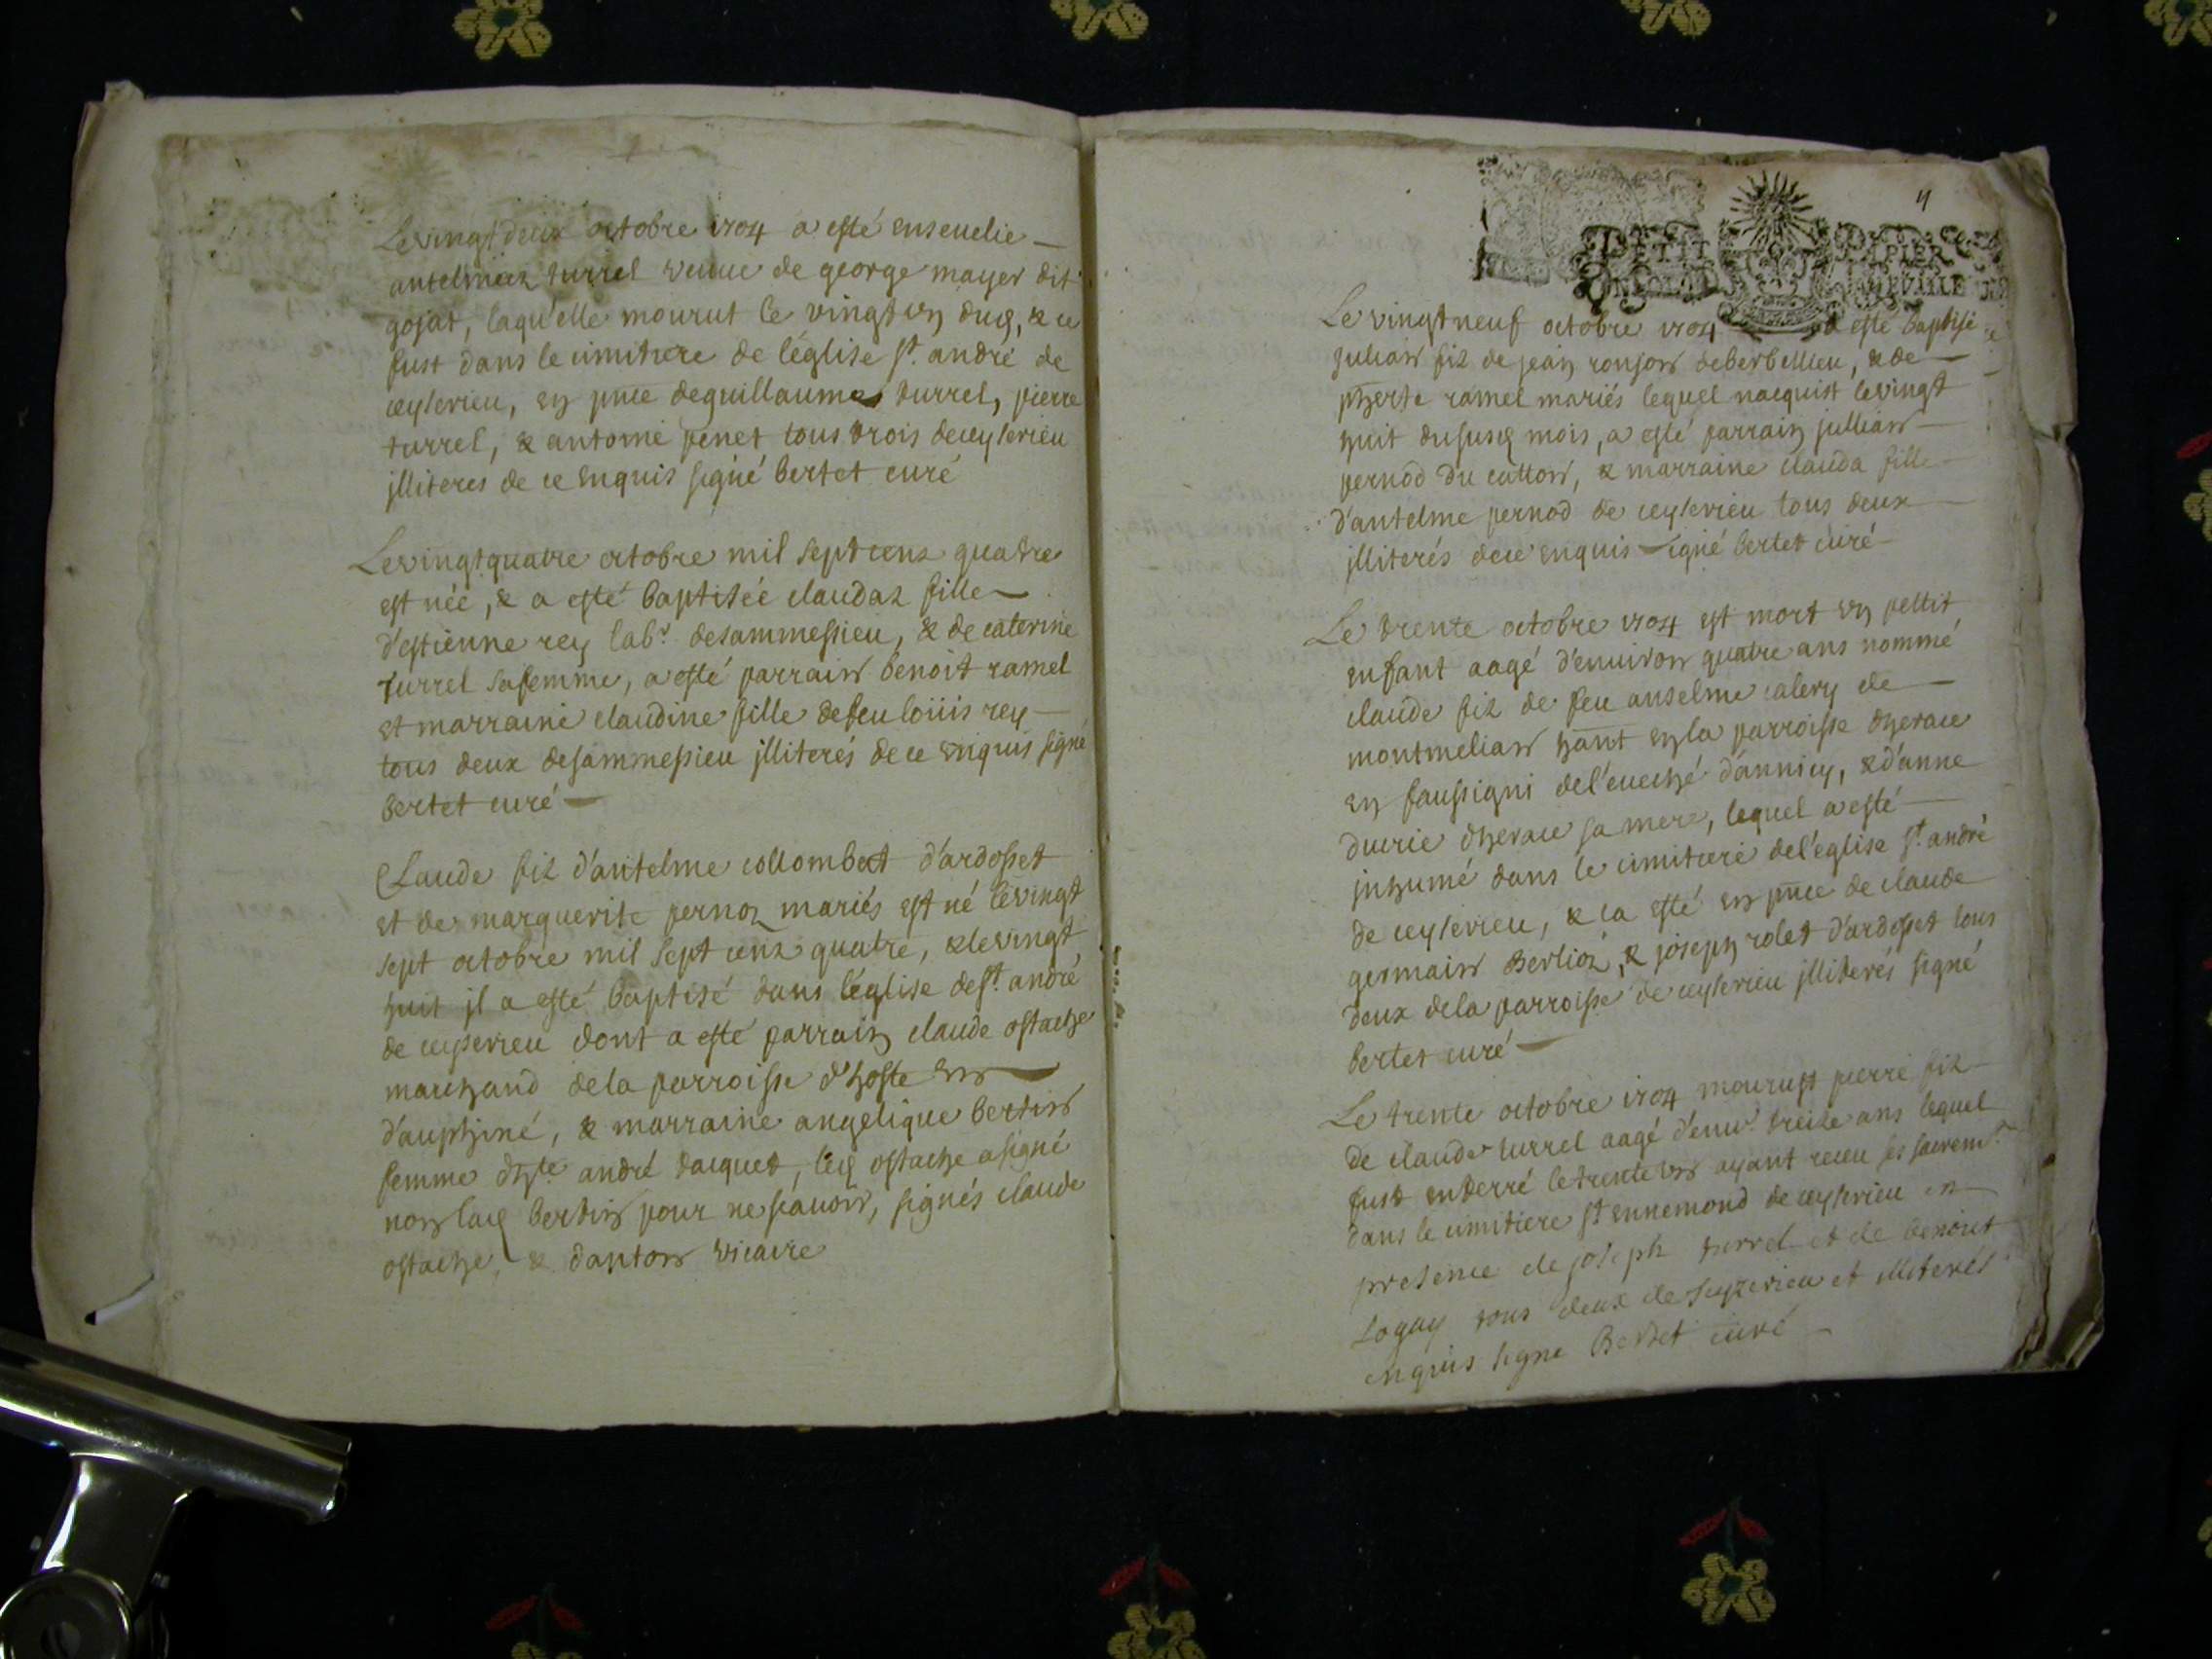 Le vingt deux octobre 1704 a esté enseuelie
antelmaz turrel veuue de george mayer dit
gojat, laqu'elle mourut le vingt un dud, & ce
fust dans le cimitiere de l'église st. andré de
ceyserieu, en pnce de guillaume turrel, pierre
turrel, & antoine penet tous trois de ceyserieu
jlliteres de ce enquis signé bertet curé
Le vingt quatre octobre mil sept cens quatre
est née, & a esté baptisée claudaz fille
d'estienne rey labr. de sammessieu, & de caterine
turrel sa femme, a esté parrain benoit ramel
et marraine claudine fille de feu loüis rey
tous deux de sammessieu jlliterés de ce enquis signé
bertet curé
Claude filz d'antelme collombet d'ardosset
et de marguerite pernoz mariés est né le vingt
sept octobre mil sept cens quatre, & le vingt
huit jl a esté baptisé dans l'église de st. andré
de ceyserieu dont a esté parrain claude ostache
marchand de la parroisse d'hoste en
d'auphiné, & marraine angelique bertin
femme d'hte. andré dacquet, led ostache a signé
non lad bertin pour ne scauoir, signés claude
ostache, & danton vicaire
4
PETIT PAPIER
Le vingt neuf octobre 1704 a esté baptisé
julian filz de jean ronjon de berbellieu, & de
pherte ramel mariés lequel nacquist le vingt
huit du susd mois, a esté parrain jullian
pernod du catton, & marraine clauda fille
d'antelme pernod de ceyserieu tous deux
jlliterés de ce enquis signé bertet curé
Le trente octobre 1704 est mort un pettit
enfant aagé d'enuiron quatre ans nommé
claude filz de feu anselme calery de
montmelian hant en la parroisse dherace
en faussigni de l'eueché d'annicy, & d'anne
ducrie dherace sa mere, lequel a esté
jnhumé dans le cimitiere de l'église st. andré
de ceyserieu, & ca esté en pnce de claude
germain Berlioz, & joseph rolet d'ardosset tous
deux de la parroisse de ceyserieu jlliterés signé
bertet curé
Le trente octobre 1704 mourust pierre filz
de claude turrel aagé d'enur. treize ans lequel
fust enterré le trente un ayant receu ses sacremts
dans le cimitiere st. ennemond de ceyserieu en
presence de joseph turrel et de benoist
Logay tous deux de seyzerieu et illiterés
enquis signe Bertet curé